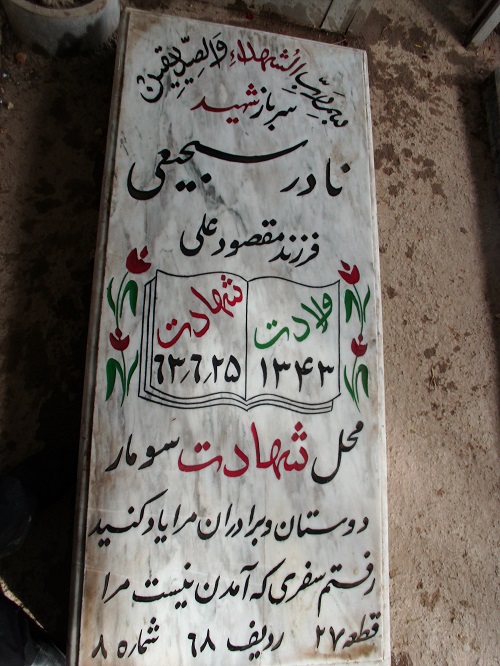 بسم رب الشهداء والصدیقین
سرباز شهید
نادر سبحیعی
فرزند مقصود علی
ولادت
۱۳۴۳
شهادت
۶۳٫۶٫۲۵
محل شهادت سومار
دوستان و برادران مرا یاد کنید
رفتم سفری که آمدن نیست مرا
قطعه ۲۷ ردیف ۶۸ شماره ۸